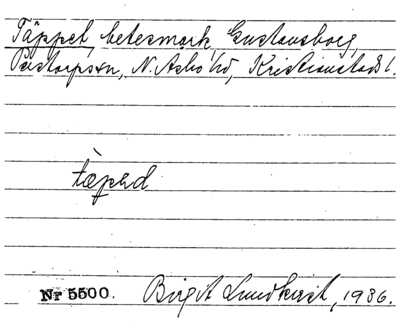 Täppet, betesmark, Gustavsborg,
Perstorps sn, N. Åsbo hd, Kristianstads l.
täpəd
Nr 5500. Birgit Lundkvist, 1936.